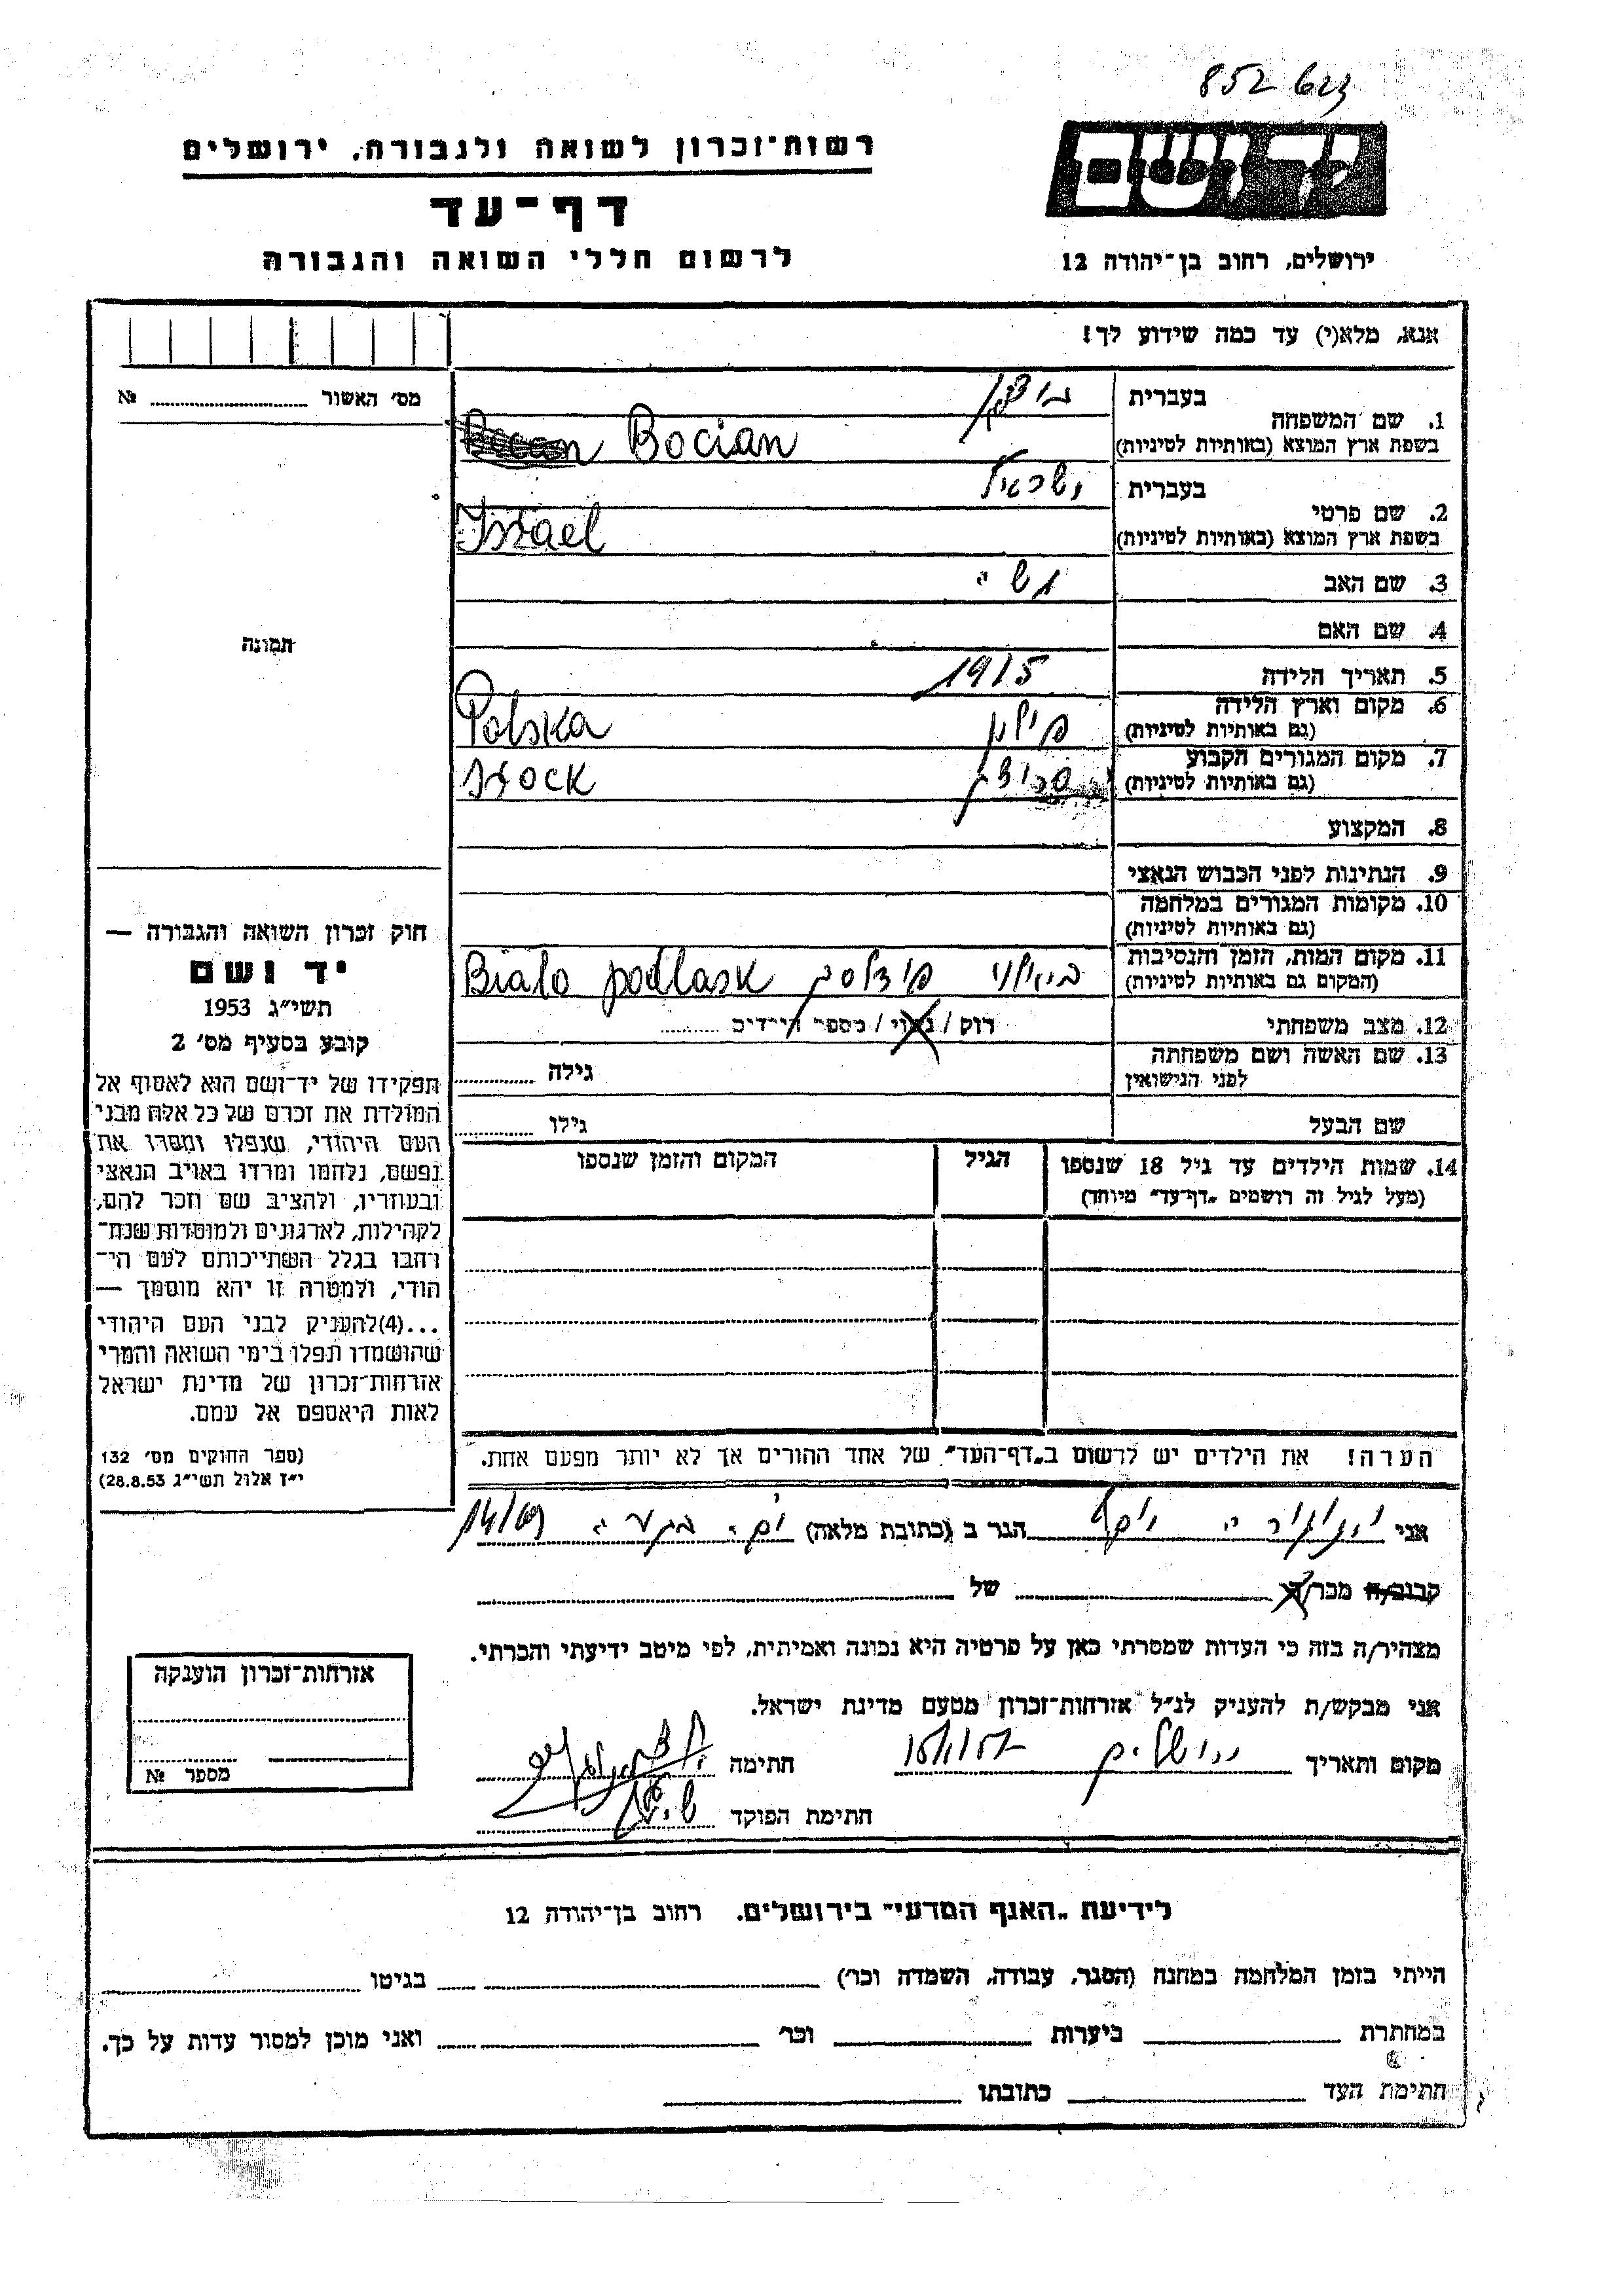 852
רשות־זכרון לשואה ולגבורה, ירושלים
יד ושם
דף־עד
לרשום חללי השואה והגבורה
ירושלים, רחוב בן־יהודה 12
אנא, מלא(י) עד כמה שידוע לך!
מס׳ האשור № 
1. שם המשפחה
בעברית
בשפת ארץ המוצא (באותיות לטיניות) Bocian
2. שם פרטי
בעברית ישראל
בשפת ארץ המוצא (באותיות לטיניות) Israel
3. שם האב
4. שם האם
תמונה
5. תאריך הלידה 1915
6. מקום וארץ הלידה
(גם באותיות לטיניות) פולין Polska
7. מקום המגורים הקבוע
(גם באותיות לטיניות) סטוצק Stock
8. המקצוע
9. הנתינות לפני הכבוש הנאצי
10. מקומות המגורים במלחמה
(גם באותיות לטיניות)
11. מקום המות, הזמן והנסיבות
(המקום גם באותיות לטיניות) Biala podlask
12. מצב משפחתי רוק / נשוי / מספר הילדים
13. שם האשה ושם משפחתה
לפני הנישואין גילה
שם הבעל גילו
14. שמות הילדים עד גיל 18 שנספו
(מעל לגיל זה רושמים „דף־עד״ מיוחד)
הגיל
המקום והזמן שנספו
הערה! את הילדים יש לרשום ב„דף־העד״ של אחד ההורים אך לא יותר מפעם אחת.
חוק זכרון השואה והגבורה —
יד ושם
תשי״ג 1953
קובע בסעיף מס׳ 2
תפקידו של יד־ושם הוא לאסוף אל
המולדת את זכרם של כל אלה מבני
העם היהודי, שנפלו ומסרו את
נפשם, נלחמו ומרדו באויב הנאצי
ובעוזריו, ולהציב שם וזכר להם,
לקהילות, לארגונים ולמוסדות שנח־
רחבו בגלל השתייכותם לעם הי־
הודי, ולמטרה זו יהא מוסמך —
...(4)להעניק לבני העם היהודי
שהושמדו ונפלו בימי השואה והמרי
אזרחות־זכרון של מדינת ישראל
לאות היאספם אל עמם.
(ספר החוקים מס׳ 132
י״ז אלול תשי״ג 28.8.53)
אני הגר ב (כתובת מלאה)
קרוב/ה מכר/ה של
מצהיר/ה בזה כי העדות שמסרתי כאן על פרטיה היא נכונה ואמיתית, לפי מיטב ידיעתי והכרתי.
אני מבקש/ת להעניק לנ״ל אזרחות־זכרון מטעם מדינת ישראל.
מקום ותאריך ירושלים חתימה
חתימת הפוקד
אזרחות־זכרון הוענקה
מספר №
לידיעת „האגף המדעי״ בירושלים, רחוב בן־יהודה 12
הייתי בזמן המלחמה במחנה (הסגר, עבודה, השמדה וכו׳) בגיטו
במחתרת ביערות וכו׳ ואני מוכן למסור עדות על כך.
חתימת העד כתובתו